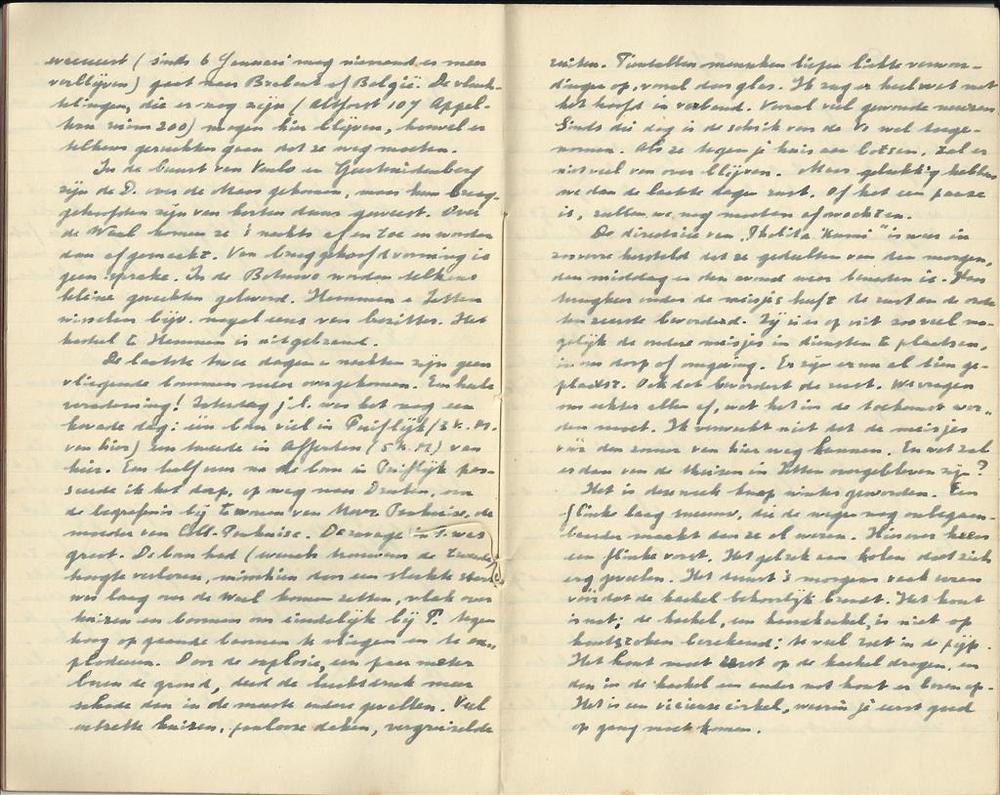 evacueert (sinds 6 Januari mag niemand er meer
verblijven) gaat naar Brabant of België. De vluch-
telingen, die er nog zijn (Altforst 107 Appel-
tern ruim 200) mogen hier blijven, hoewel er
telkens geruchten gaan dat ze weg moeten.
In de buurt van Venlo en Geertruidenberg
zijn de D. over de Maas gekomen, maar hun brug-
gehoofden zijn van korten duur geweest. Over
de Waal komen ze 's nachts af en toe en worden
dan afgemaakt. Van bruggehoofdvorming is
geen sprake. In de Betuwe worden telkens
kleine gevechten geleverd. Hemmen en Zetten
wisselen bijv. nogal eens van bezitter. Het
kasteel te Hemmen is uitgebrand.
De laatste twee dagen en nachten zijn geen
vliegende bommen meer overgekomen. Een heele
verademing! Zaterdag j.l. was het nog een
kwade dag: één bom viel in Puiflijk (3 k.M.
van hier) een tweede in Afferden (5 k.M) van
hier. Een half uur na de bom in Puiflijk pas-
seerde ik het dorp, op weg naar Druten, om
de begrafenis bij te wonen van Mevr.
moeder van Coll. De ravage was
groot. De bom had (evenals trouwens de tweede)
hoogte verloren, misschien door een slechte start
was laag over de Waal komen zetten, vlak over
huizen en boomen om eindelijk bij P. tegen
hoog op gaande boomen te vliegen en te ex-
plodeeren. Door de explosie, een paar meter
boven de grond, deed de luchtdruk meer
schade dan in de meeste andere gevallen. Veel
ontzette huizen, panlooze daken, vergruizelde
ruiten. Tientallen menschen liepen lichte verwon-
dingen op, vooral door glas. Ik zag er heel wat met
het hoofd in verband. Vooral veel gewonde neuzen.
Sinds die dag is de schrik van de V1 wel toege-
nomen. Als ze tegen je huis aan botsen, zal er
niet veel van over blijven. Maar gelukkig hebben
we dan de laatste dagen rust. Of het een pauze
is, zullen we nog moeten afwachten.
De directrice van "Tholita Kumi" is weer in
zooverre hersteld dat ze gedeelten van den morgen,
den middag en den avond weer beneden is. Haar
terugkeer onder de meisjes heeft de rust en de orde
ten zeerste bevorderd. Zij is er op uit zooveel mo-
gelijk de oudere meisjes in diensten te plaatsen,
in ons dorp of omgeving. Er zijn er nu al tien ge-
plaatst. Ook dat bevordert de rust. We vragen
ons echter allen af, wat het in de toekomst wor-
den moet. Ik verwacht niet dat de meisjes
vóór den zomer van hier weg kunnen. En wat zal
er dan van de tehuizen in Zetten overgebleven zijn?
Het is deze week knap winter geworden. Een
flinke laag sneeuw, die de wegen nog onbegaan-
baarder maakt dan ze al waren. Hierover heen
een flinke vorst. Het gebrek aan kolen doet zich
erg gevoelen. Het duurt 's morgens vaak uren
vóórdat de kachel behoorlijk brandt. Het hout
is nat; de kachel, een haardkachel, is niet op
houtstoken berekend; te veel roet in de pijp.
Het hout moet eerst op de kachel drogen, en
dan in de kachel en ander nat hout er boven op.
Het is een vicieuze cirkel, waarin je eerst goed
op gang moet komen.